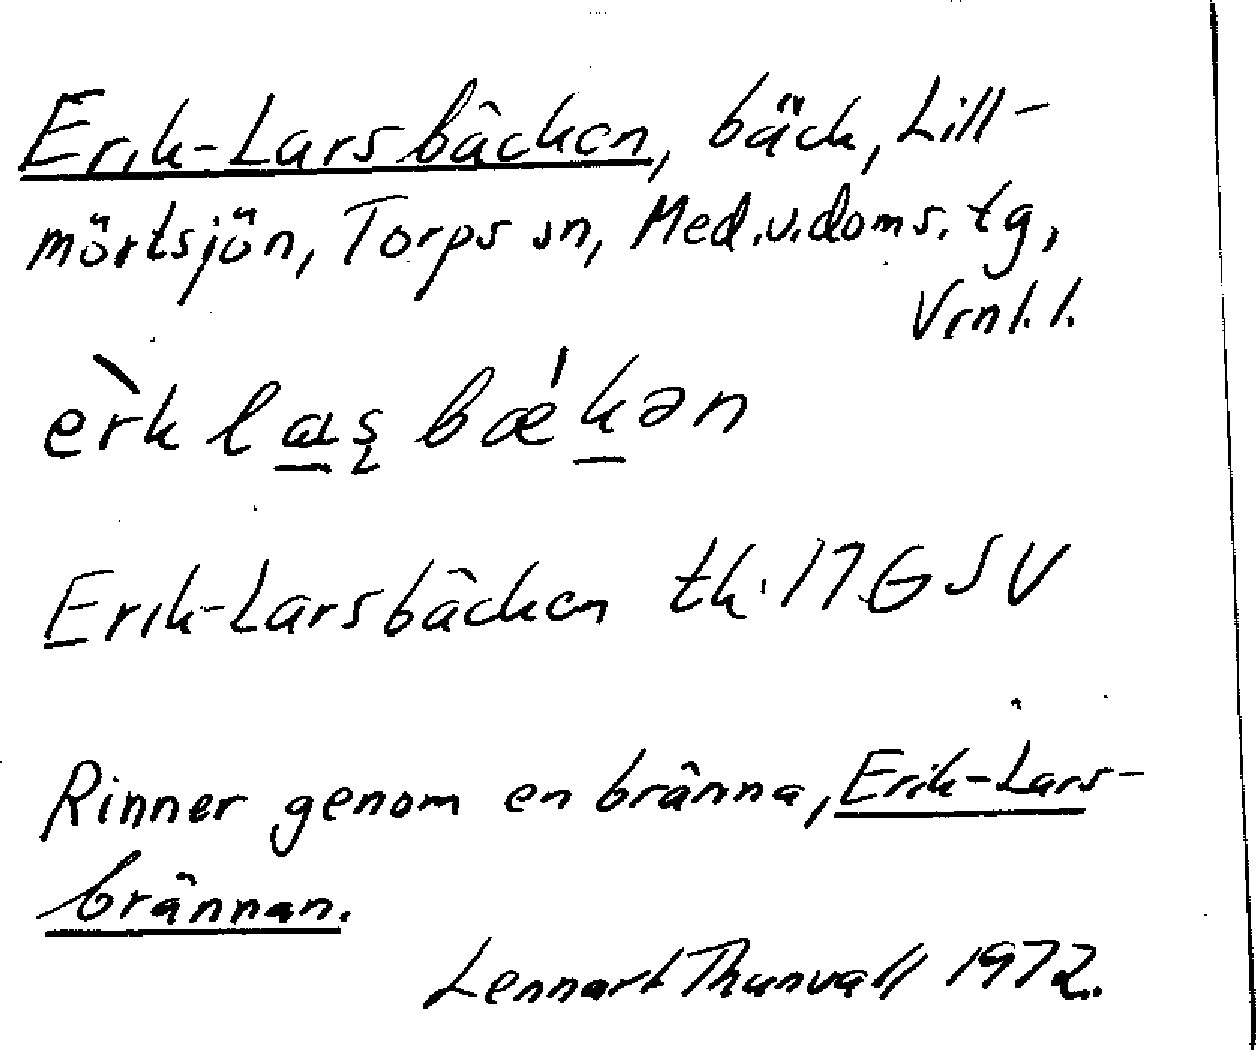 Erik-Larsbäcken, bäck, Lill-
mörtsjön, Torps sn, Med.v.doms.tg,
Vrnl.l.
èrk laʂ bǽkən
Erik-Larsbäcken tk. 17G SV
Rinner genom en bränna, Erik-Lars-
brännan.
Lennart Thunvall 1972.